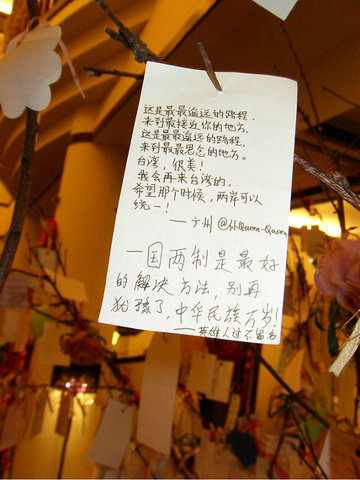 这是最最遥远的路程，
来到最接近你的地方，
这是最最遥远的路程，
来到最最思念的地方。
台湾，很美！
我会再来台湾的，
希望那个时候，两岸可以
统一！
——广州 @小Queena-Queena
一国两制是最好
的解决方法，别再
犹豫了，中华民族万岁！
——英雄人过不留名